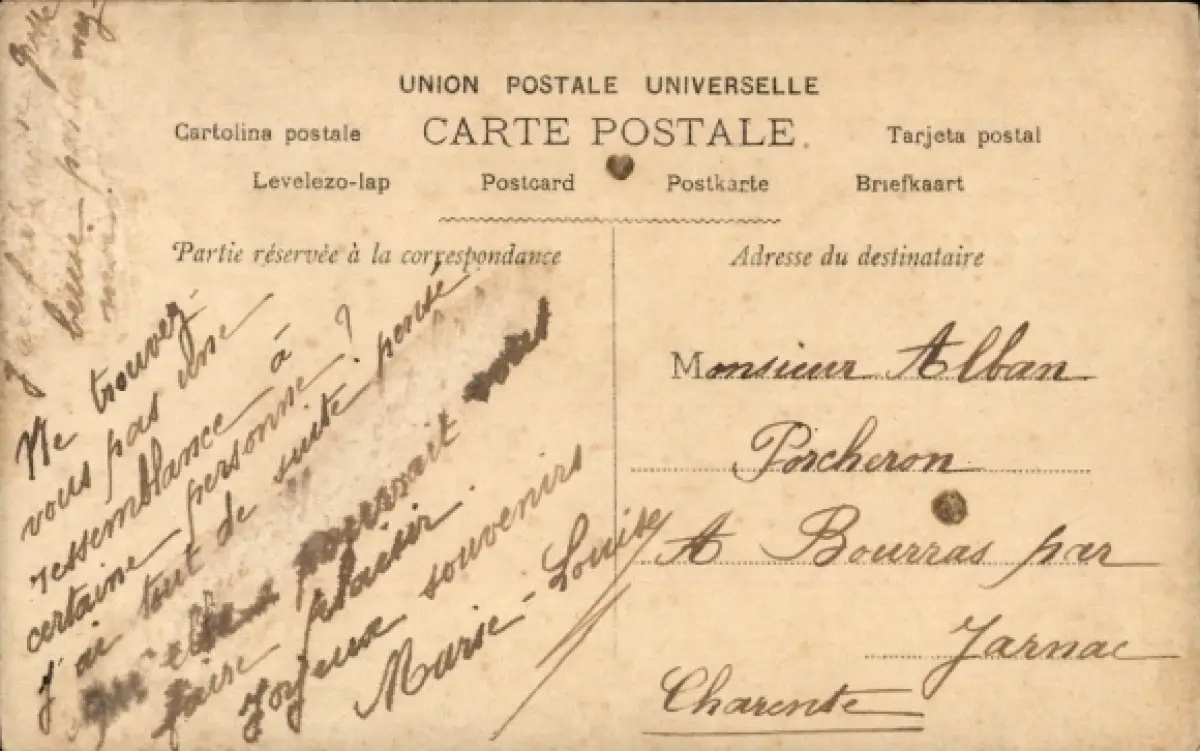 UNION POSTALE UNIVERSELLE
Cartolina postale CARTE POSTALE. Tarjeta postal
Levelezo-lap Postcard Postkarte Briefkaart
Partie réservée à la correspondance
Adresse du destinataire
Ne trouvez
vous pas une
ressemblance à
certaine personne ?
J'ai tout de suite pensé
qu'elle pourrait vous
faire plaisir.
Joyeux souvenirs
Marie-Louise
Monsieur Alban
Porcheron
A Bourras par
Jarnac
Charente